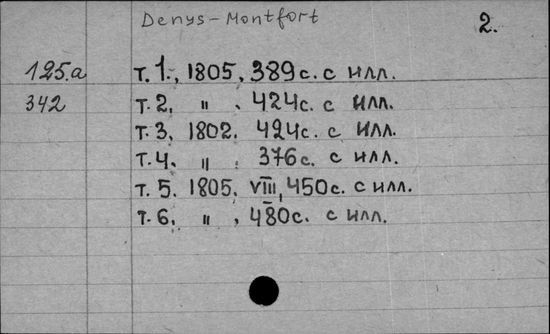 Denys-Montfort
2.
125.a т.1., 1805, 389с. с илл.
342 т.2. " , 424с. с илл.
т.3. 1802. 424с. с илл.
т.4. " . 376с. с илл.
т.5. 1805. VIII, 450с. с илл.
т.6. " , 480с. с илл.